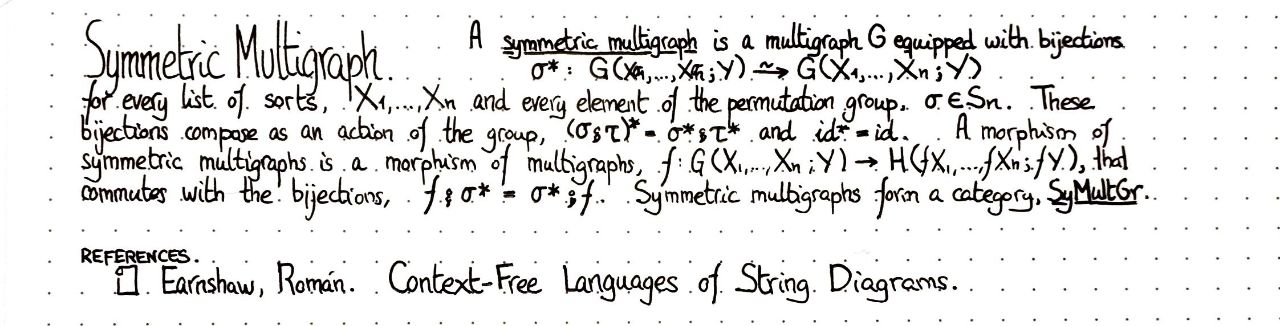 Symmetric Multigraph. A symmetric multigraph is a multigraph G equipped with bijections
σ* : G(Xσ₁,...,Xσₙ;Y) ⥲ G(X₁,...,Xₙ;Y)
for every list of sorts, X₁,...,Xn and every element of the permutation group, σ∈Sn. These
bijections compose as an action of the group, (σ⨾τ)* = σ*⨾τ* and id* = id. A morphism of
symmetric multigraphs is a morphism of multigraphs, f: G(X₁,...,Xn;Y) → H(fX₁,...,fXn;fY), that
commutes with the bijections, f⨾σ* = σ*⨾f. Symmetric multigraphs form a category, SyMultGr.
REFERENCES.
Earnshaw, Román. Context-Free Languages of String Diagrams.